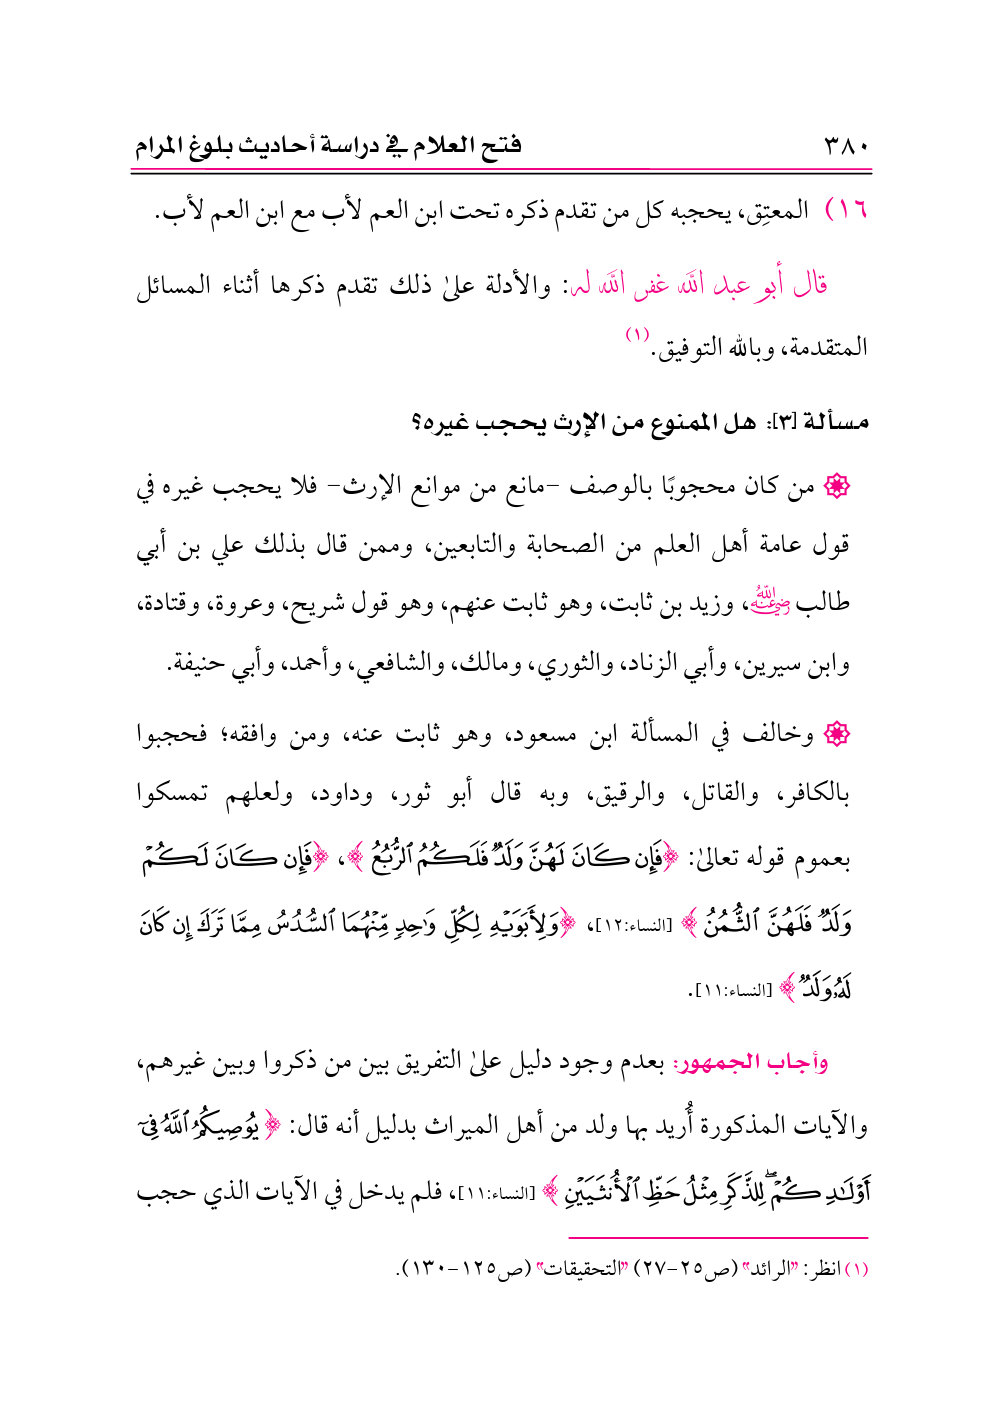 ٣٨٠ فتح العلام في دراسة أحاديث بلوغ المرام
١٦) المعتِق، يحجبه كل من تقدم ذكره تحت ابن العم لأب مع ابن العم لأب.
قال أبو عبد الله غفر الله له: والأدلة علىٰ ذلك تقدم ذكرها أثناء المسائل
المتقدمة، وبالله التوفيق.(١)
مسألة [٣]: هل الممنوع من الإرث يحجب غيره؟
۞ من كان محجوبًا بالوصف -مانع من موانع الإرث- فلا يحجب غيره في
قول عامة أهل العلم من الصحابة والتابعين، وممن قال بذلك علي بن أبي
طالب رضي الله عنه، وزيد بن ثابت، وهو ثابت عنهم، وهو قول شريح، وعروة، وقتادة،
وابن سيرين، وأبي الزناد، والثوري، ومالك، والشافعي، وأحمد، وأبي حنيفة.
۞ وخالف في المسألة ابن مسعود، وهو ثابت عنه، ومن وافقه؛ فحجبوا
بالكافر، والقاتل، والرقيق، وبه قال أبو ثور، وداود، ولعلهم تمسكوا
بعموم قوله تعالىٰ: ﴿فَإِن كَانَ لَهُنَّ وَلَدٌ فَلَكُمُ ٱلرُّبُعُ﴾، ﴿فَإِن كَانَ لَكُمْ
وَلَدٌ فَلَهُنَّ ٱلثُّمُنُ﴾ [النساء:١٢]، ﴿وَلِأَبَوَيْهِ لِكُلِّ وَٰحِدٍ مِّنْهُمَا ٱلسُّدُسُ مِمَّا تَرَكَ إِن كَانَ
لَهُۥ وَلَدٌ﴾ [النساء:١١].
وأجاب الجمهور: بعدم وجود دليل علىٰ التفريق بين من ذكروا وبين غيرهم،
والآيات المذكورة أُريد بها ولد من أهل الميراث بدليل أنه قال: ﴿يُوصِيكُمُ ٱللَّهُ فِىٓ
أَوْلَٰدِكُمْ ۖ لِلذَّكَرِ مِثْلُ حَظِّ ٱلْأُنثَيَيْنِ﴾ [النساء:١١]، فلم يدخل في الآيات الذي حجب
(١) انظر: "الرائد" (ص٢٥-٢٧) "التحقيقات" (ص١٢٥-١٣٠).